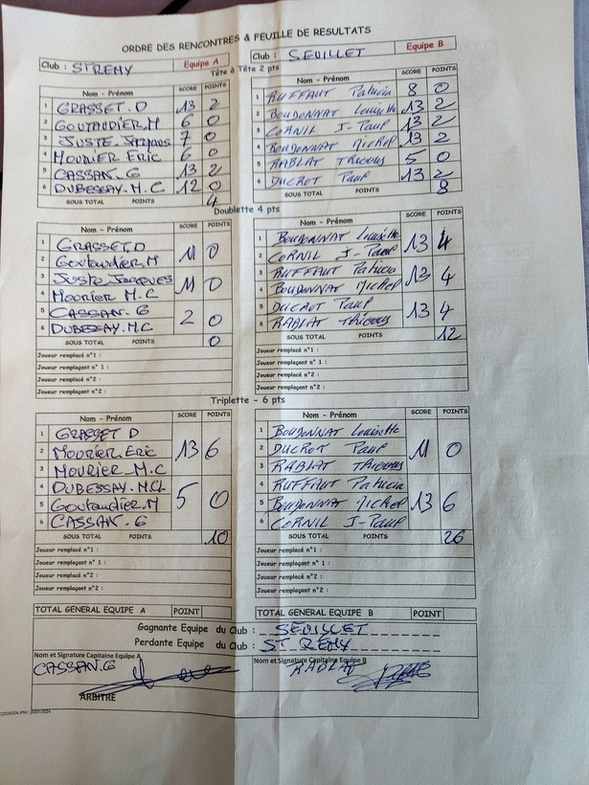 ORDRE DES RENCONTRES & FEUILLE DE RESULTATS
Club : ST REMY Equipe A
Club : SEUILLET Equipe B
Tête à Tête 2 pts
Nom - Prénom SCORE POINTS
1 GRASSET.D 13 2
2 GOUTAUDIER.M 6 0
3 JUSTE Jacques 7 0
4 MOURIER ERIC 6 0
5 CASSAN.G 13 2
6 DUBESSAY.M.C 12 0
SOUS TOTAL POINTS 4
Nom - Prénom SCORE POINTS
1 RUFFAUT Patricia 8 0
2 BOUDONNAT Louisette 13 2
3 CORNIL J-Paul 13 2
4 BOUDONNAT Michel 13 2
5 RABLAT 5 0
6 DUCROT Paul 13 2
SOUS TOTAL POINTS 8
Doublette 4 pts
Nom - Prénom SCORE POINTS
1 GRASSET D
2 Goutaudier.M 11 0
3 Juste Jacques
4 Mourier M.C 11 0
5 CASSAN. G
6 DUBESSAY.M.C 2 0
SOUS TOTAL POINTS 0
Joueur remplacé n°1 :
Joueur remplaçant n° 1 :
Joueur remplacé n°2 :
Joueur remplaçant n°2 :
Nom - Prénom SCORE POINTS
1 BOUDONNAT Louisette 13 4
2 CORNIL J-Paul
3 RUFFAUT Patricia 13 4
4 BOUDONNAT Michel
5 DUCROT Paul 13 4
6 RABLAT
SOUS TOTAL POINTS 12
Joueur remplacé n°1 :
Joueur remplaçant n° 1 :
Joueur remplacé n°2 :
Joueur remplaçant n°2 :
Triplette - 6 pts
Nom - Prénom SCORE POINTS
1 GRASSET D
2 MOURIER ERIC 13 6
3 MOURIER M.C
4 DUBESSAY.M.CL
5 Goutaudier.M 5 0
6 CASSAN. G
SOUS TOTAL POINTS 10
Joueur remplacé n°1 :
Joueur remplaçant n° 1 :
Joueur remplacé n°2 :
Joueur remplaçant n°2 :
Nom - Prénom SCORE POINTS
1 BOUDONNAT Louisette
2 DUCROT Paul 11 0
3 RABLAT
4 RUFFAUT Patricia
5 BOUDONNAT Michel 13 6
6 CORNIL J-Paul
SOUS TOTAL POINTS 26
Joueur remplacé n°1 :
Joueur remplaçant n° 1 :
Joueur remplacé n°2 :
Joueur remplaçant n°2 :
TOTAL GENERAL EQUIPE A POINT
TOTAL GENERAL EQUIPE B POINT
Gagnante Equipe du Club : SEUILLET
Perdante Equipe du Club : ST REMY
Nom et Signature Capitaine Equipe A
CASSAN.G
Nom et Signature Capitaine Equipe B
RABLAT
ARBITRE